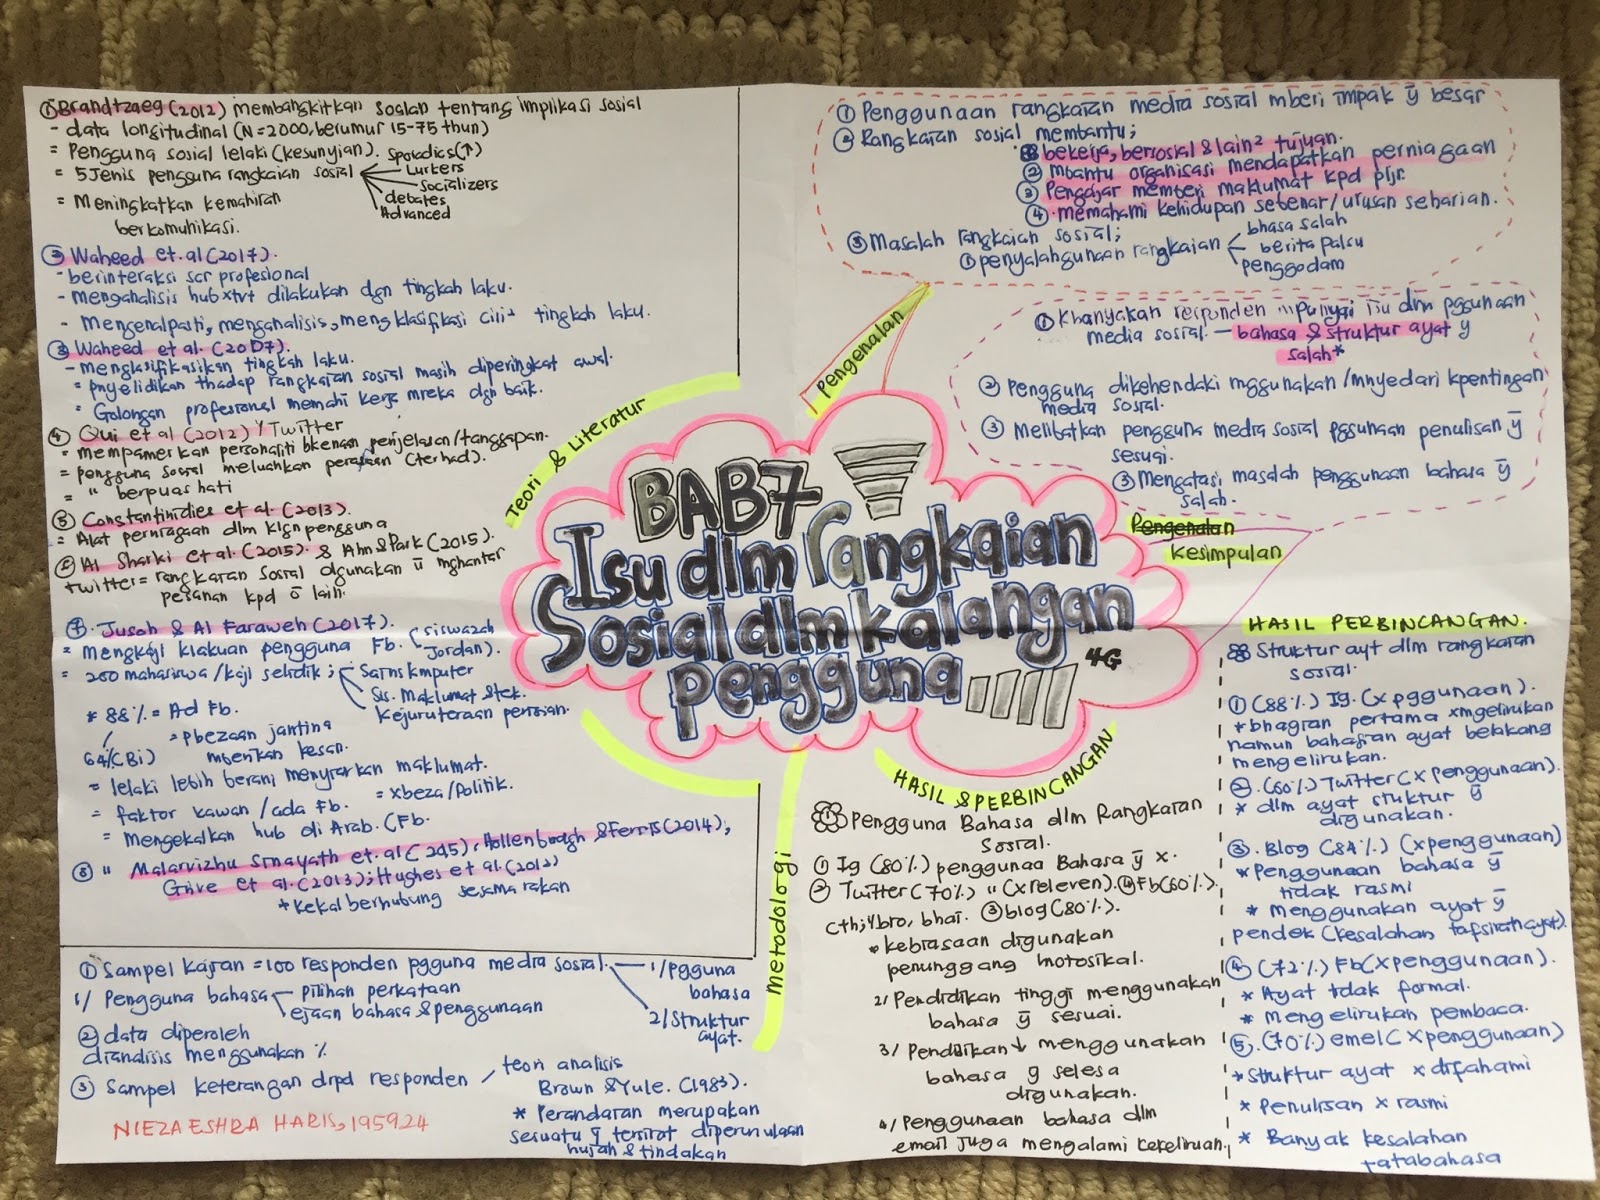 BAB 7
Isu dlm rangkaian
Sosial dlm kalangan
pengguna
4G
Teori & Literatur
① Brandtzaeg (2012) membangkitkan soalan tentang implikasi sosial
- data longitudinal (N=2000, berumur 15-75 thun)
= Pengguna sosial lelaki (kesunyian).
= 5 Jenis pengguna rangkaian sosial
Sporadics (↑)
Lurkers
Socializers
debates
Advanced
= Meningkatkan kemahiran
berkomunikasi.
② Waheed et.al (2017).
- berinteraksi scr profesional
- menganalisis hub xtvt dilakukan dgn tingkah laku.
- Mengenalpasti, menganalisis, mengklasifikasi ciri² tingkah laku.
③ Waheed et al. (2017).
- mengklasifikasikan tingkah laku.
= pnyelidikan thadap rangkaian sosial masih diperingkat awal.
= Golongan profesional memahi kerja mreka dgn baik.
④ Qui et al (2012) / Twitter
= mempamerkan personaliti bkenaan penjelasan/tanggapan.
= pengguna sosial meluahkan perasaan (terhad).
= " berpuas hati
⑤ Constantinidies et al. (2013).
= Alat perniagaan dlm klgn pengguna
Al Sharki et al. (2015). & Ahn & Park (2015).
Twitter = rangkaian sosial digunakan ū mghantar
pesanan kpd ō lain.
⑦. Jusoh & Al Faraweh (2017).
= mengkaji klakuan pengguna Fb.
(siswazah
Jordan).
= 200 mahasiswa/kaji selidik;
Sains kmputer
Sis. Maklumat & tek.
Kejuruteraan perisian.
* 88% = Ad Fb.
64% (BI)
= pbezaan jantina
mberikan kesan.
= lelaki lebih berani menyiarkan maklumat.
= faktor kawan/ada Fb.
= xbeza/Politik.
= Mengekalkan hub di Arab. (Fb.
⑧ " Malarvizhu Sinayath et.al (2015), Hollenbaugh & Ferris (2014);
Grive et al. (2013); Hughes et al. (2012)
* kekal berhubung sesama rakan
metodologi
① Sampel kajian = 100 responden pgguna media sosial.
1/ Pgguna
bahasa
2/ Struktur
ayat.
1/ Pengguna bahasa
pilihan perkataan
ejaan bahasa & penggunaan
② data diperoleh
dianalisis menggunakan %
③ Sampel keterangan drpd responden
teori analisis
Brown & Yule. (1983).
* Perandaian merupakan
sesuatu ȳ tersirat diperumulaan
hujah & tindakan
NIEZA ESHRA HARIS, 195924
Pengenalan
① Penggunaan rangkaian media sosial mberi impak ȳ besar
② Rangkaian sosial membantu;
bekerja, bersosial & lain² tujuan.
② Mbantu organisasi mendapatkan perniagaan
③ Pengajar memberi maklumat kpd pljr.
④ memahami kehidupan sebenar/urusan seharian.
③ Masalah rangkaian sosial;
① penyalahgunaan rangkaian
bhasa salah
berita palsu
penggodam
① Khanyakan responden mpunyai isu dlm pggunaan
media sosial. — bahasa & struktur ayat ȳ
salah*
② Pengguna dikehendaki mggunakan/mnyedari kpentingan
media sosial.
③ Melibatkan pengguna media sosial pggunaan penulisan ȳ
sesuai.
③ Mengatasi masalah penggunaan bahasa ȳ
salah.
Pengenalan
kesimpulan
HASIL & PERBINCANGAN
Pengguna Bahasa dlm Rangkaian
Sosial.
① Ig (80%) penggunaa Bahasa ȳ x.
② Twitter (70%) " (x releven). ④ Fb (60%).
cth; Ybro, bhai. ③ blog (80%).
* kebiasaan digunakan
penunggang motosikal.
2/ Pendidikan tinggi menggunakan
bahasa ȳ sesuai.
3/ Pendidikan ↓ menggunakan
bahasa ȳ selesa
digunakan.
4/ Penggunaan bahasa dlm
email juga mengalami kekeliruan.
HASIL PERBINCANGAN.
Struktur ayt dlm rangkaian
sosial.
① (88%) Ig. (x pggunaan).
* bhagian pertama xmgelirukan
namun bahagian ayat belakang
mengelirukan.
②. (60%) Twitter (x penggunaan).
* dlm ayat stuktur ȳ
digunakan.
③. Blog (84%) (xpenggunaan)
* Penggunaan bahasa ȳ
tidak rasmi
* menggunakan ayat ȳ
pendek (kesalahan tafsiran ayat).
④ (72%) Fb (xpenggunaan).
* Ayat tidak formal.
* mengelirukan pembaca.
⑤. (70%) emel (xpenggunaan)
* Struktur ayat x difahami
* Penulisan x rasmi
* Banyak kesalahan
tatabahasa